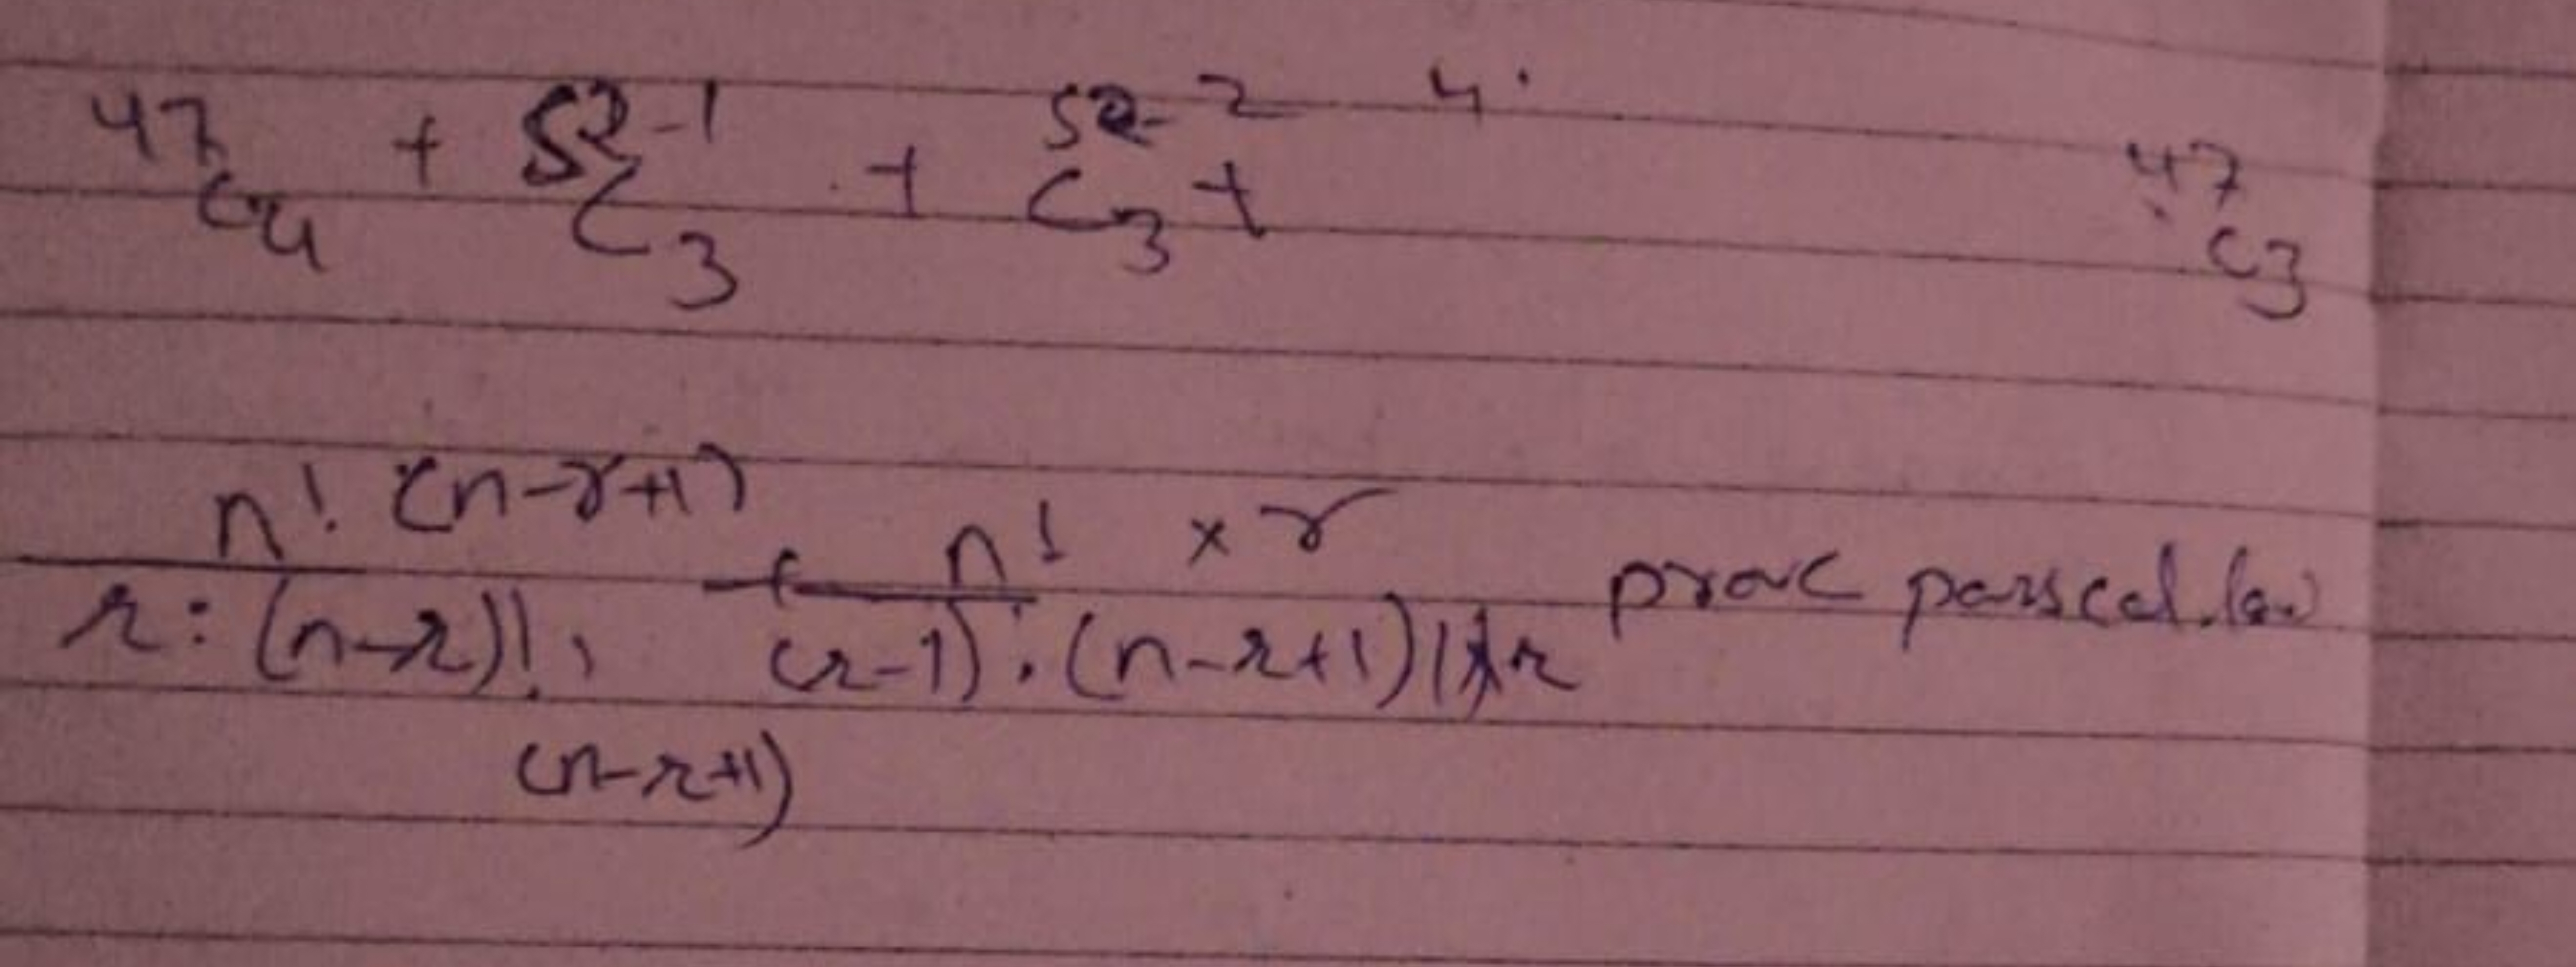 47C4 + 52-1C3 + 52-2C3 + 47C3
n! (n-r+1) n! × r
r! (n-r)! + (r-1)! (n-r+1)! r prove pascal law
(n-r+1)